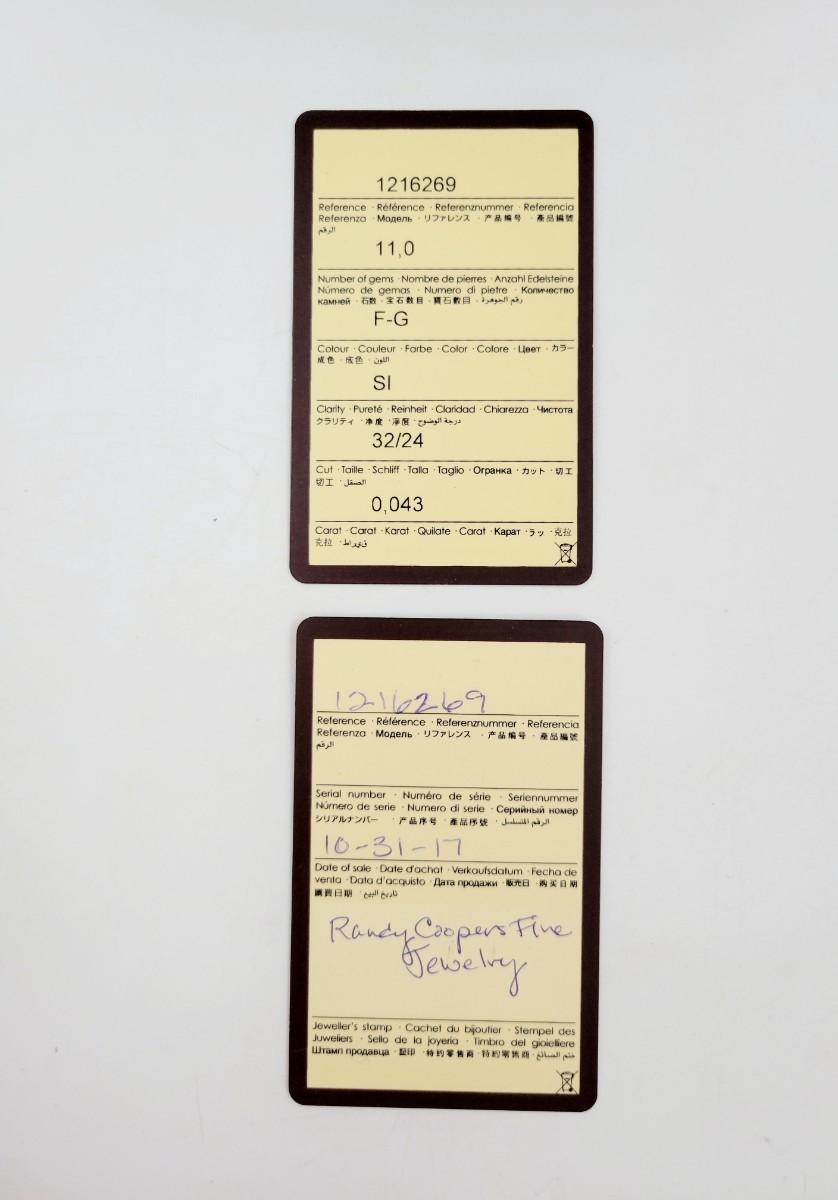 1216269
Reference · Référence · Referenznummer · Referencia
Referenza · Модель · リファレンス · 产品编号 · 產品編號
الرقم
11,0
Number of gems · Nombre de pierres · Anzahl Edelsteine
Número de gemas · Numero di pietre · Количество
камней · 石数 · 宝石数目 · 寶石數目 · رقم الجوهرة
F-G
Colour · Couleur · Farbe · Color · Colore · Цвет · カラー
成色 · 成色 · اللون
SI
Clarity · Pureté · Reinheit · Claridad · Chiarezza · Чистота
クラリティ · 净度 · 淨度 · درجة الوضوح
32/24
Cut · Taille · Schliff · Talla · Taglio · Огранка · カット · 切工
切工 · الصقل
0,043
Carat · Carat · Karat · Quilate · Carat · Карат · ラッ · 克拉
克拉 · قيراط
1216269
Reference · Référence · Referenznummer · Referencia
Referenza · Модель · リファレンス · 产品编号 · 產品編號
الرقم
Serial number · Numéro de série · Seriennummer
Número de serie · Numero di serie · Серийный номер
シリアルナンバー · 产品序号 · 產品序號 · الرقم المتسلسل
10-31-17
Date of sale · Date d'achat · Verkaufsdatum · Fecha de
venta · Data d'acquisto · Дата продажи · 販売日 · 购买日期
購買日期 · تاريخ البيع
Randy Coopers Fine
Jewelry
Jeweller's stamp · Cachet du bijoutier · Stempel des
Juweliers · Sello de la joyería · Timbro del gioielliere
Штамп продавца · 配印 · 特约零售商 · 特約零售商 · ختم الصائغ